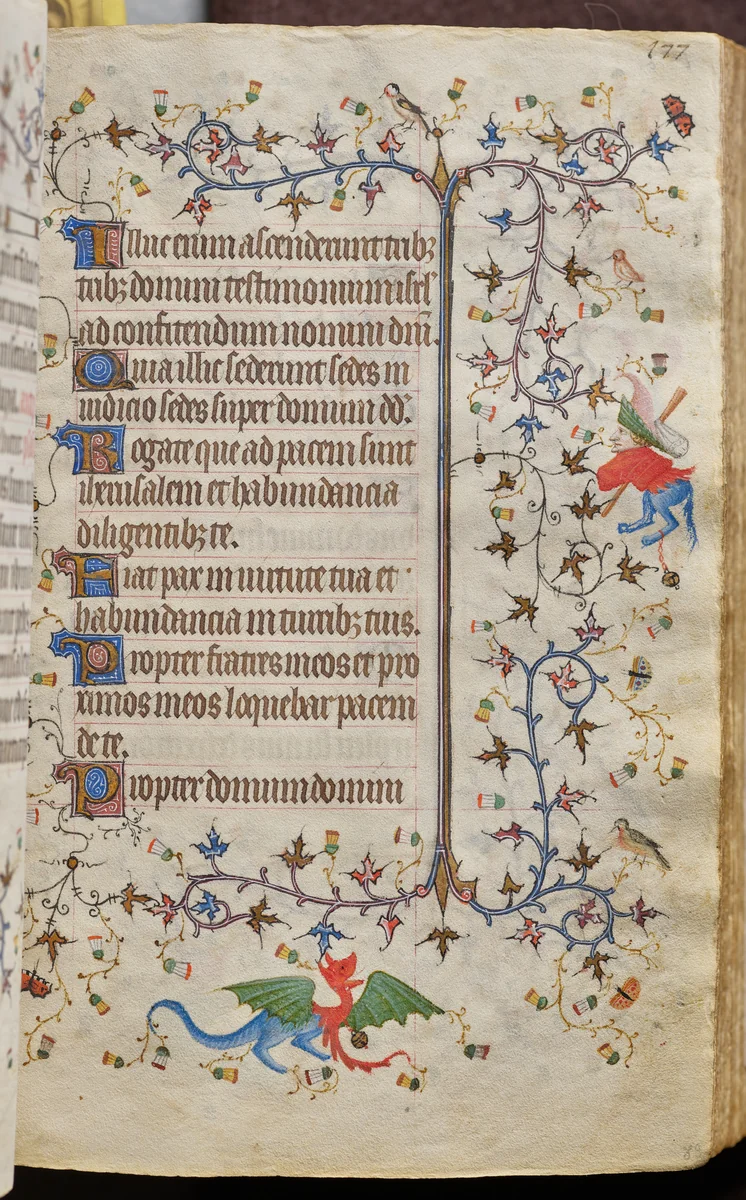 177
Illuc enim ascenderunt tribꝫ
tribꝫ domini testimonium isrl'
ad confitendum nomini dm̄.
Quia illic sederunt sedes in
iudicio sedes super domum dd̄.
Rogate que ad pacem sunt
iherusalem et habundancia
diligentibꝫ te.
Fiat pax in uirtute tua et
habundancia in turribꝫ tuis.
Propter fratres meos et pro
ximos meos loquebar pacem
de te.
Propter domum domini